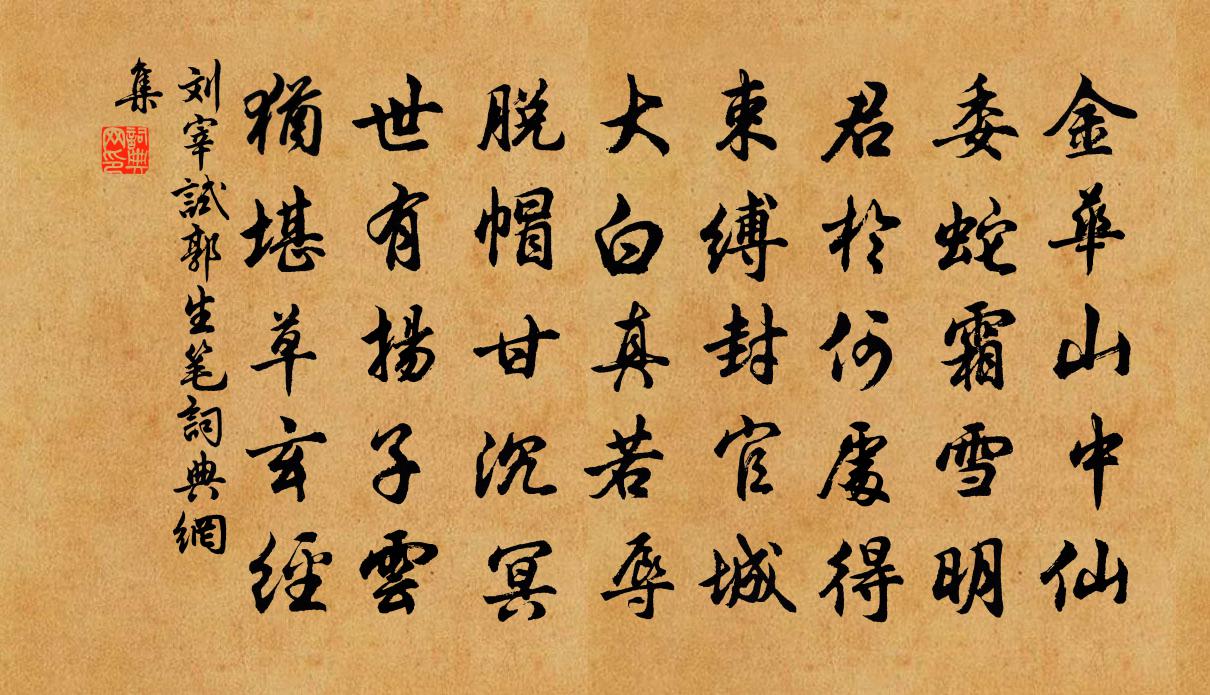 金華山中仙
委蛇霜雪明
君於何處得
束縛封官城
大白真若辱
脱帽甘沉冥
世有揚子雲
猶堪草玄經
刘宰試郭生笔詞典網
集
詞典
网印